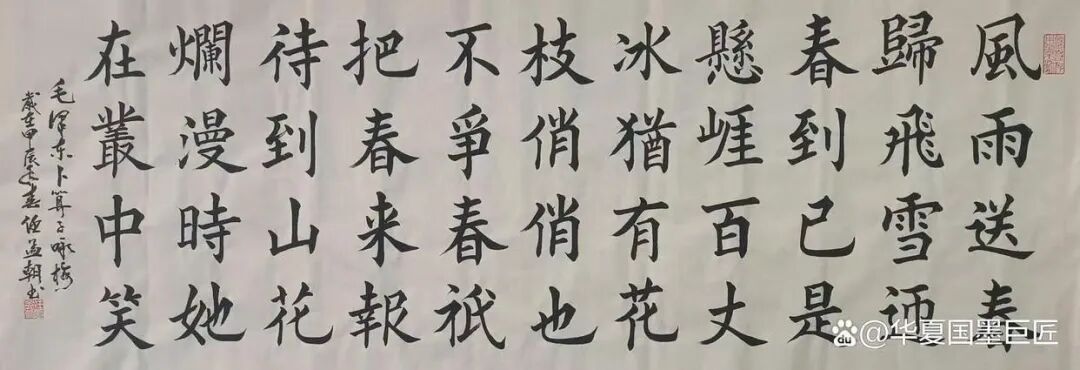 風雨送春
歸飛雪迎
春到已是
懸崕百丈
冰猶有花
枝俏俏也
不爭春祇
把春来報
待到山花
爛漫時她
在叢中笑
毛泽东卜算子咏梅
歲在甲辰春任孟朝书
@华夏国墨巨匠